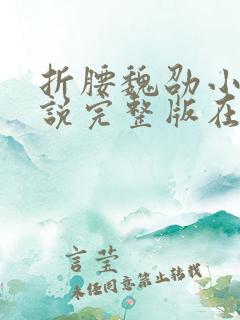 折腰魏劭小
說完整版在
言莹
未经同意禁止转载